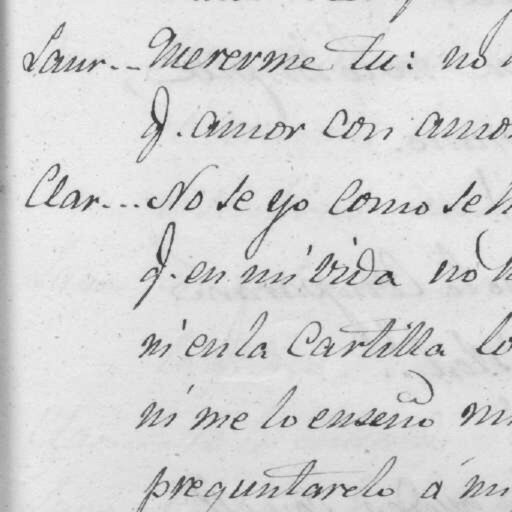 Laur... Quererme tu: no
q. amor con amor
Clar... No se yo como se
q. en mi vida no
ni en la Cartilla lo
ni me lo enseñó mi
preguntarelo á mi